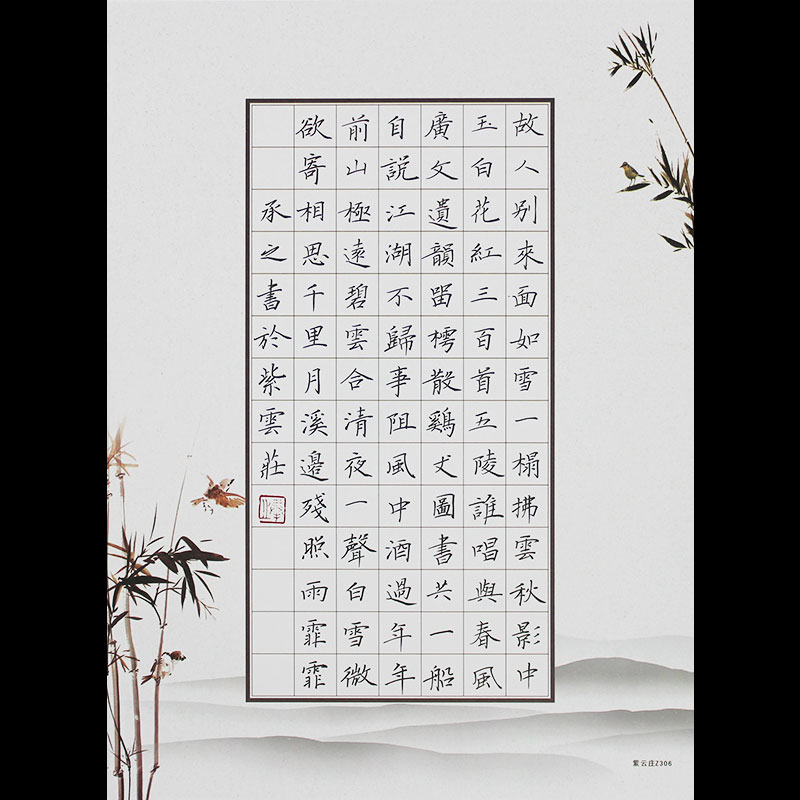 故人別來面如雪一榻拂雲秋影中
玉白花紅三百首五陵誰唱與春風
廣文遺韻留樗散鷄犬圖書共一船
自説江湖不歸事阻風中酒過年年
前山極遠碧雲合清夜一聲白雪微
欲寄相思千里月溪邊殘照雨霏霏
承之書於紫雲莊
紫云庄Z306